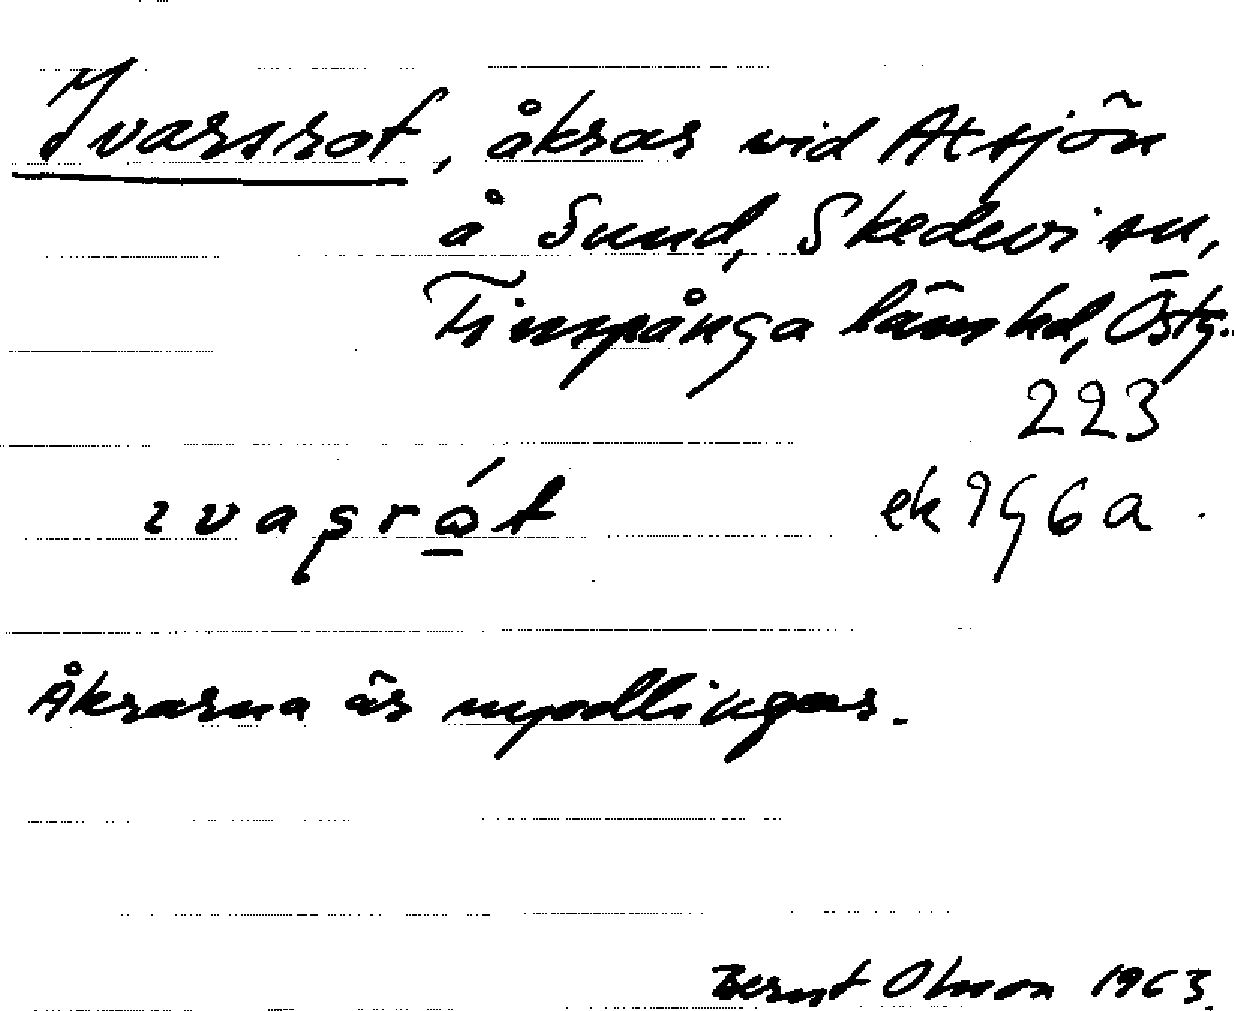 Ivarsrot, åkrar vid Atsjön
å Sund, Skedevi sn,
Finspånga länshd, Östg.
223
ek 9G6a.
ɩvaʂrót
Åkrarna är nyodlingar.
Bernt Olsson 1963.